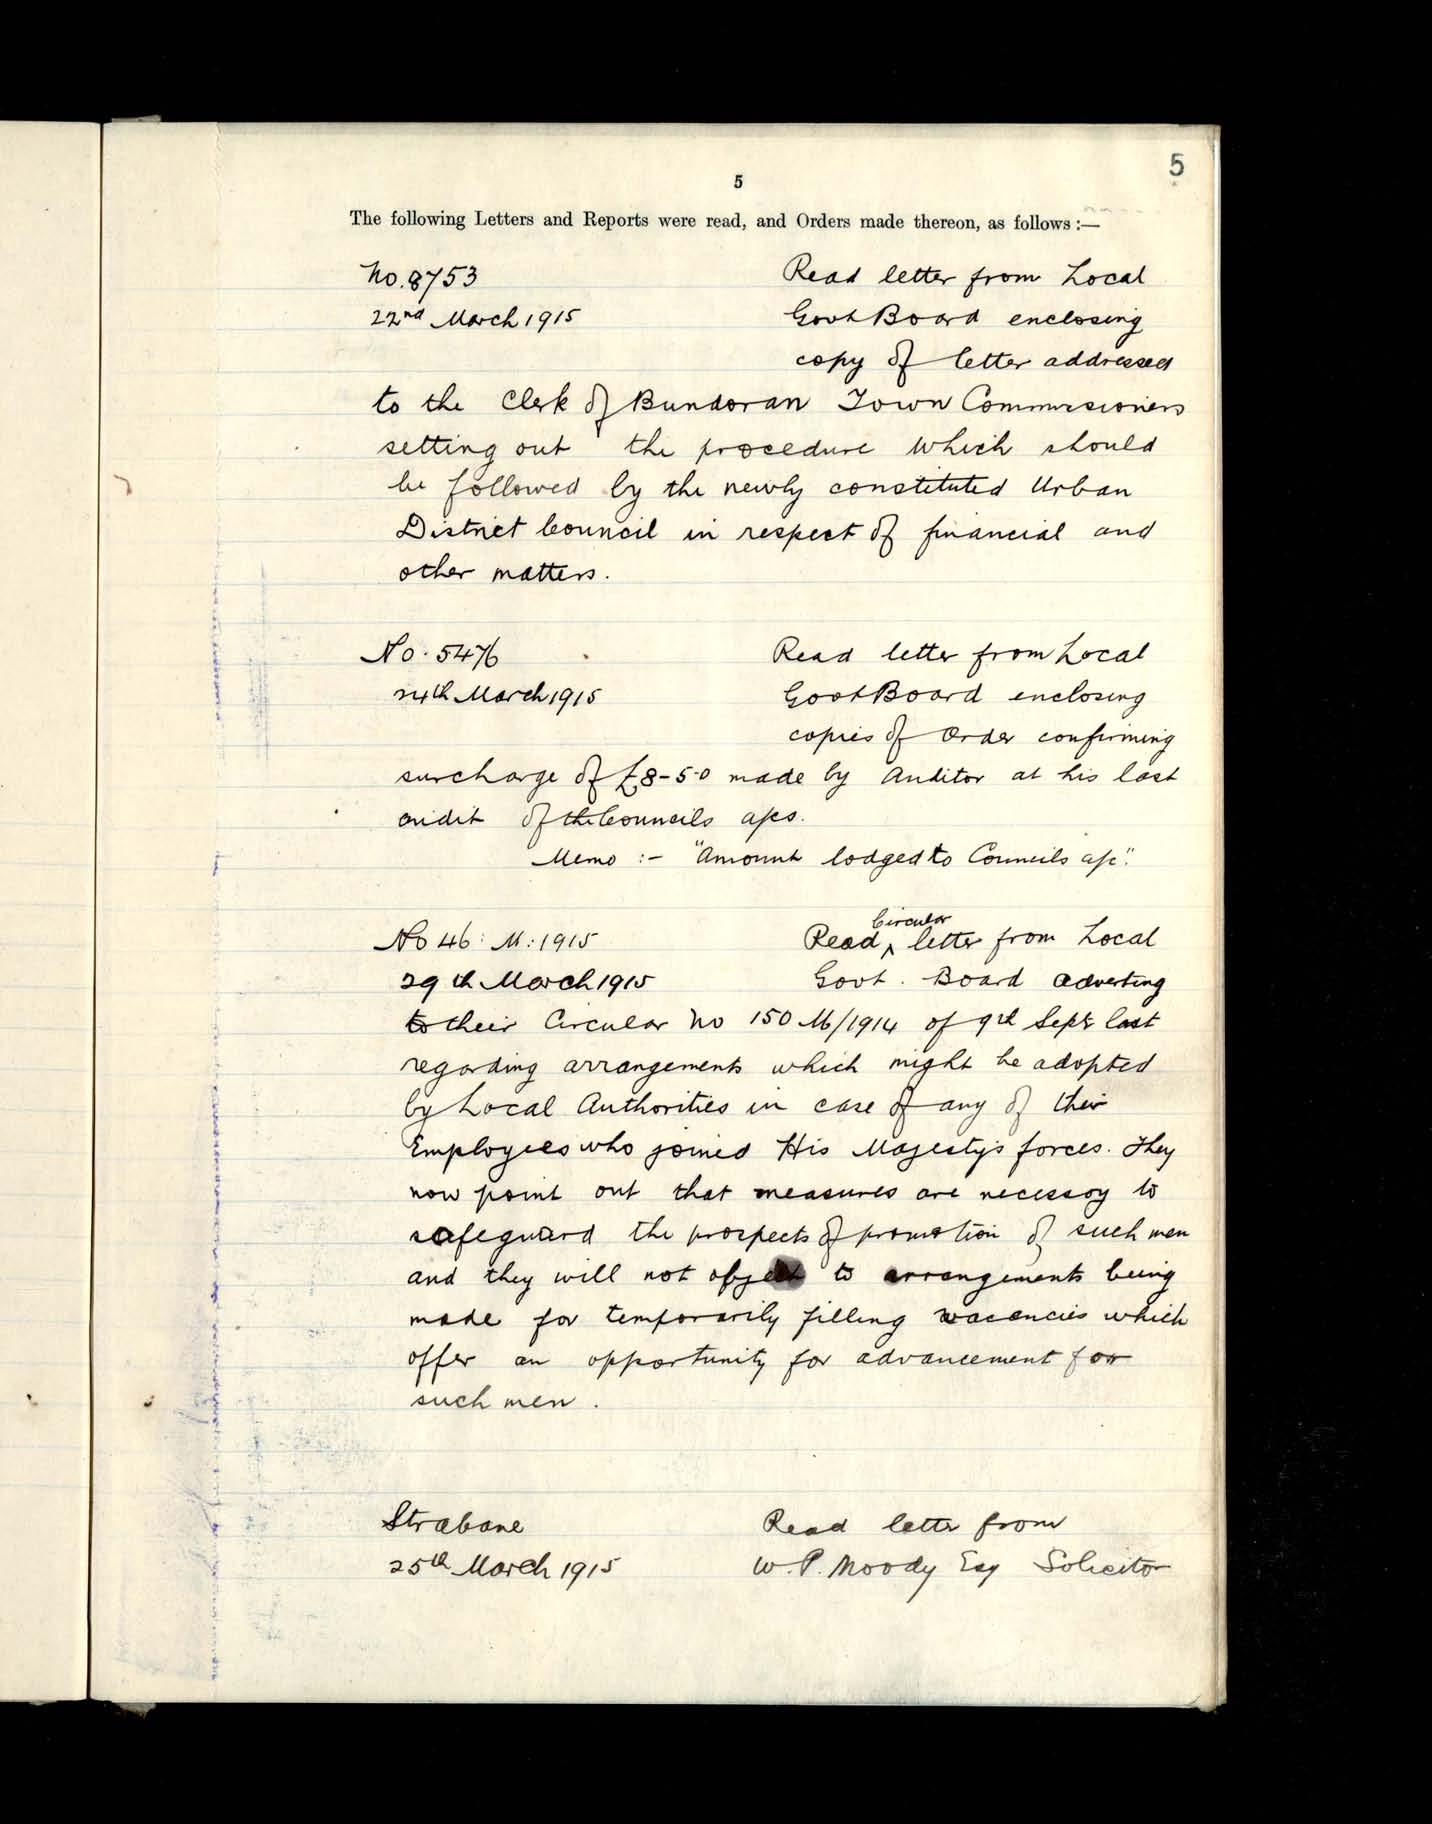 5
5
The following Letters and Reports were read, and Orders made thereon, as follows :—
No. 8753 Read letter from Local
22nd March 1915 Govt Board enclosing
copy of letter addressed
to the Clerk of Bundoran Town Commissioners
setting out the procedure which should
be followed by the newly constituted Urban
District Council in respect of financial and
other matters.
No. 5476 Read letter from Local
24th March 1915 Govt Board enclosing
copies of Order confirming
surcharge of £8-5-0 made by Auditor at his last
audit of the Councils a/cs.
Memo :- "Amount lodged to Councils a/c".
Circular
No 46: M: 1915 Read ^ letter from Local
29th March 1915 Govt. Board adverting
to their Circular No 150 M/1914 of 9th Septr last
regarding arrangements which might be adopted
by Local Authorities in case of any of their
Employees who joined His Majesty's forces. They
now point out that measures are necessary to
safeguard the prospects of promotion of such men
and they will not object to arrangements being
made for temporarily filling vacancies which
offer an opportunity for advancement for
such men.
Strabane Read letter from
25th March 1915 W. P. Moody Esq Solicitor